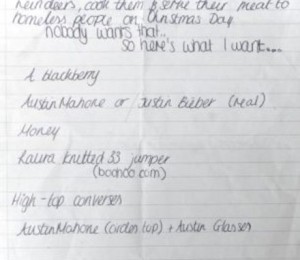 reindeers, cook them & serve their meat to
homeless people on Christmas Day.
nobody wants that..
so here's what I want....
A Blackberry
Austin Mahone or Justin Bieber (real)
Money
knitted 33 jumper
(boohoo.com)
High-top converses
Austin Mahone (order top) + Austin Glasses